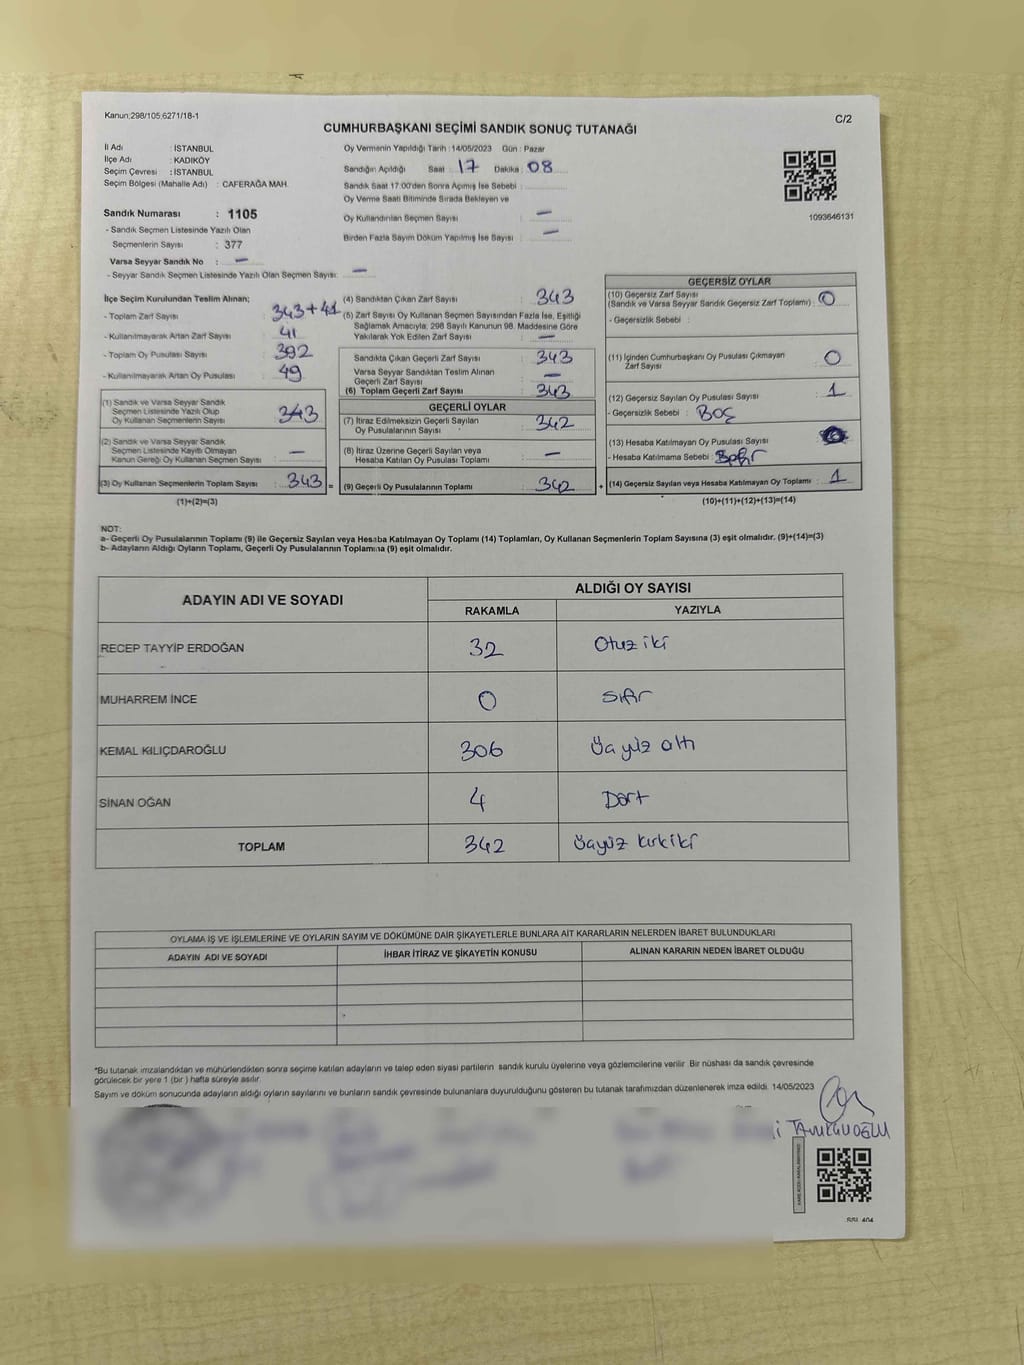 Kanun;298/105;6271/18-1
C/2
CUMHURBAŞKANI SEÇİMİ SANDIK SONUÇ TUTANAĞI
İl Adı : İSTANBUL
İlçe Adı : KADIKÖY
Seçim Çevresi : İSTANBUL
Seçim Bölgesi (Mahalle Adı) : CAFERAĞA MAH.
Sandık Numarası : 1105
- Sandık Seçmen Listesinde Yazılı Olan
Seçmenlerin Sayısı : 377
Varsa Seyyar Sandık No : -
- Seyyar Sandık Seçmen Listesinde Yazılı Olan Seçmen Sayısı: -
Oy Vermenin Yapıldığı Tarih : 14/05/2023 Gün : Pazar
Sandığın Açıldığı Saat 17 Dakika 08
Sandık Saat 17:00'den Sonra Açımış İse Sebebi :
Oy Verme Saati Bitiminde Sırada Bekleyen ve
Oy Kullandırılan Seçmen Sayısı : -
Birden Fazla Sayım Döküm Yapılmış İse Sayısı : -
1093646131
İlçe Seçim Kurulundan Teslim Alınan;
- Toplam Zarf Sayısı : 343+41
- Kullanılmayarak Artan Zarf Sayısı : 41
- Toplam Oy Pusulası Sayısı : 392
- Kullanılmayarak Artan Oy Pusulası : 49
(1) Sandık ve Varsa Seyyar Sandık
Seçmen Listesinde Yazılı Olup
Oy Kullanan Seçmenlerin Sayısı : 343
(2) Sandık ve Varsa Seyyar Sandık
Seçmen Listesinde Kayıtlı Olmayan
Kanun Gereği Oy Kullanan Seçmen Sayısı : -
(3) Oy Kullanan Seçmenlerin Toplam Sayısı : 343 =
(1)+(2)=(3)
(4) Sandıktan Çıkan Zarf Sayısı : 343
(5) Zarf Sayısı Oy Kullanan Seçmen Sayısından Fazla İse, Eşitliği
Sağlamak Amacıyla, 298 Sayılı Kanunun 98. Maddesine Göre
Yakılarak Yok Edilen Zarf Sayısı : -
Sandıkta Çıkan Geçerli Zarf Sayısı : 343
Varsa Seyyar Sandıktan Teslim Alınan
Geçerli Zarf Sayısı : -
(6) Toplam Geçerli Zarf Sayısı : 343
GEÇERLİ OYLAR
(7) İtiraz Edilmeksizin Geçerli Sayılan
Oy Pusulalarının Sayısı : 342
(8) İtiraz Üzerine Geçerli Sayılan veya
Hesaba Katılan Oy Pusulası Toplamı : -
(9) Geçerli Oy Pusulalarının Toplamı : 342 +
GEÇERSİZ OYLAR
(10) Geçersiz Zarf Sayısı
(Sandık ve Varsa Seyyar Sandık Geçersiz Zarf Toplamı) : 0
- Geçersizlik Sebebi :
(11) İçinden Cumhurbaşkanı Oy Pusulası Çıkmayan
Zarf Sayısı : 0
(12) Geçersiz Sayılan Oy Pusulası Sayısı : 1
- Geçersizlik Sebebi : BOŞ
(13) Hesaba Katılmayan Oy Pusulası Sayısı :
- Hesaba Katılmama Sebebi :
(14) Geçersiz Sayılan veya Hesaba Katılmayan Oy Toplamı : 1
(10)+(11)+(12)+(13)=(14)
NOT:
a- Geçerli Oy Pusulalarının Toplamı (9) ile Geçersiz Sayılan veya Hesaba Katılmayan Oy Toplamı (14) Toplamları, Oy Kullanan Seçmenlerin Toplam Sayısına (3) eşit olmalıdır. (9)+(14)=(3)
b- Adayların Aldığı Oyların Toplamı, Geçerli Oy Pusulalarının Toplamına (9) eşit olmalıdır.
ADAYIN ADI VE SOYADI ALDIĞI OY SAYISI
RAKAMLA YAZIYLA
RECEP TAYYİP ERDOĞAN 32 Otuz iki
MUHARREM İNCE 0 Sıfır
KEMAL KILIÇDAROĞLU 306 Üçyüz altı
SİNAN OĞAN 4 Dört
TOPLAM 342 Üçyüz kırkiki
OYLAMA İŞ VE İŞLEMLERİNE VE OYLARIN SAYIM VE DÖKÜMÜNE DAİR ŞİKAYETLERLE BUNLARA AİT KARARLARIN NELERDEN İBARET BULUNDUKLARI
ADAYIN ADI VE SOYADI İHBAR İTİRAZ VE ŞİKAYETİN KONUSU ALINAN KARARIN NEDEN İBARET OLDUĞU
*Bu tutanak imzalandıktan ve mühürlendikten sonra seçime katılan adayların ve talep eden siyasi partilerin sandık kurulu üyelerine veya gözlemcilerine verilir. Bir nüshası da sandık çevresinde
görülecek bir yere 1 (bir) hafta süreyle asılır.
Sayım ve döküm sonucunda adayların aldığı oyların sayılarını ve bunların sandık çevresinde bulunanlara duyurulduğunu gösteren bu tutanak tarafımızdan düzenlenerek imza edildi. 14/05/2023
SSL 404